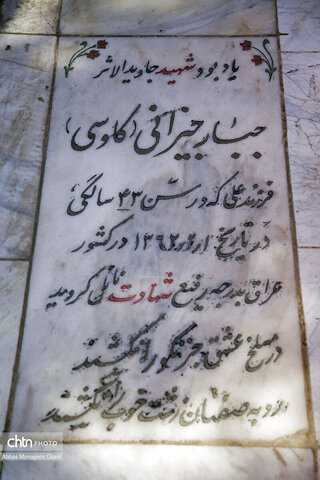 یادبود شهید جاویدالاثر
جبار جیزانی (کاوسی)
فرزند علی که در سن ۴۳ سالگی
در تاریخ ۱۳۶۲/۲/۱ در کشور
عراق بدرجه رفیع شهادت نائل گردید
در مسلخ عشق جز نکو را نکشند
روبه صفتان زشت خو را نکشند
chtn PHOTO
Abbas Monagemi Gilani